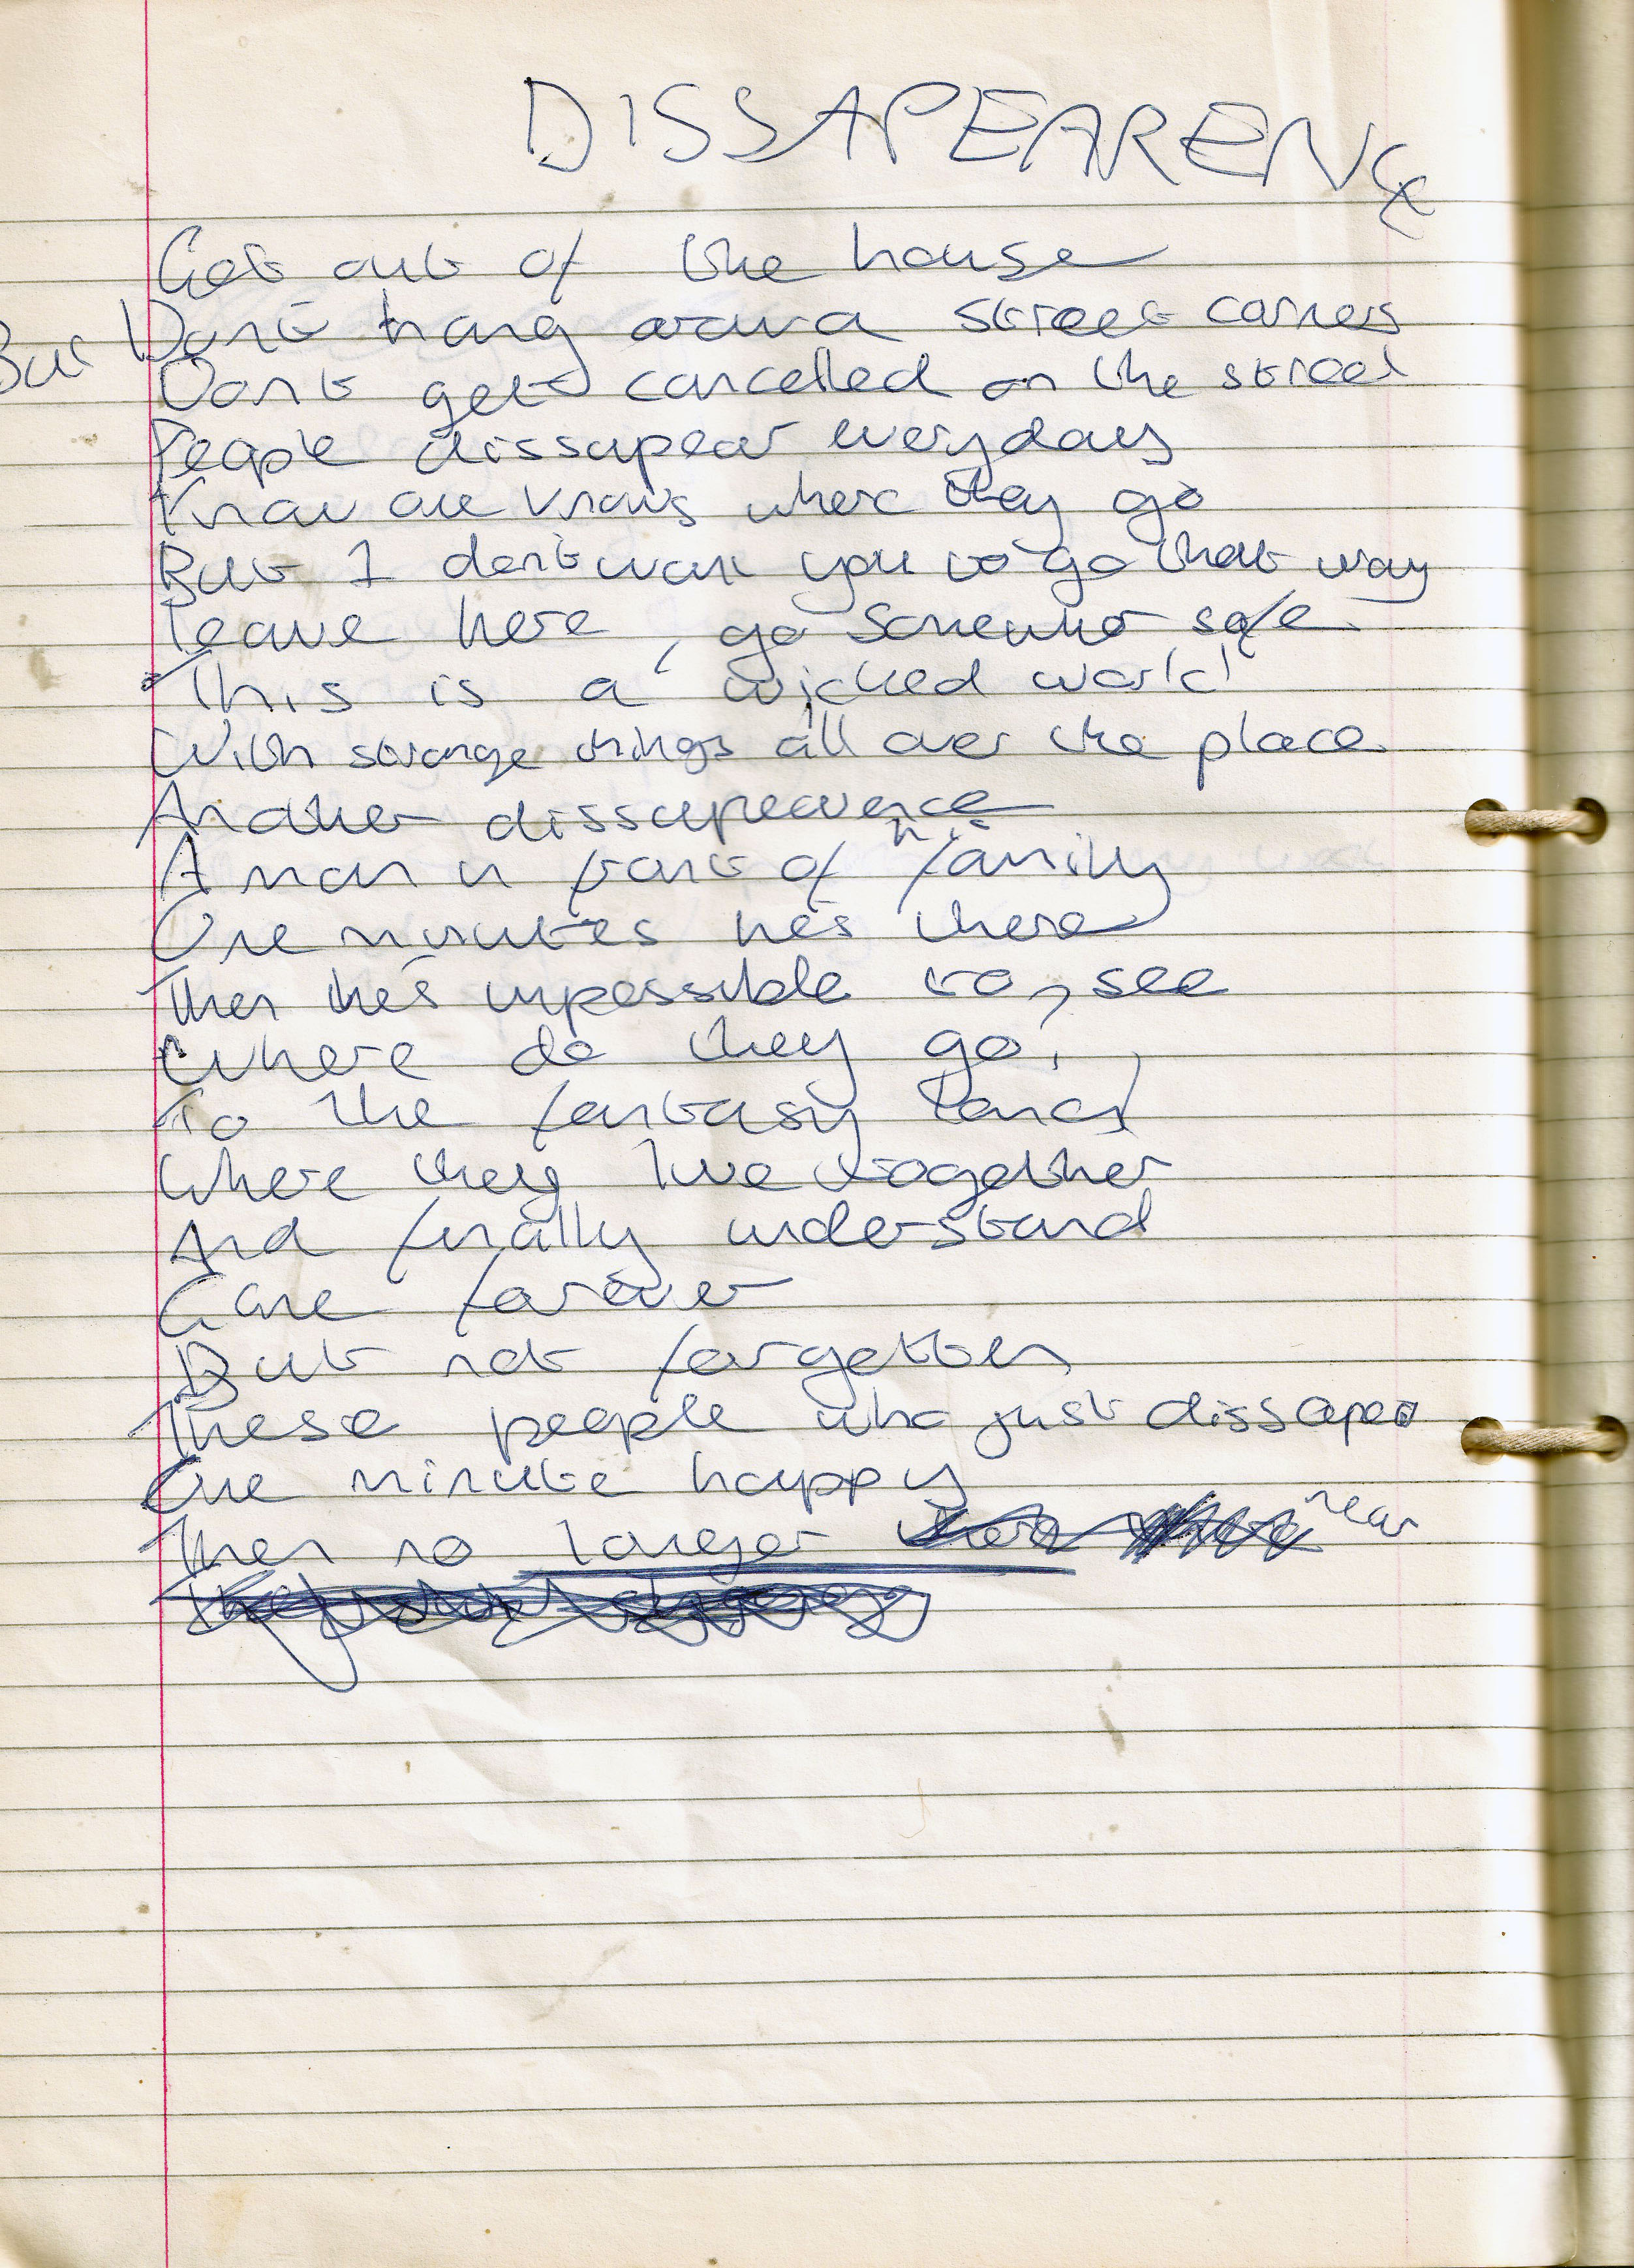 DISSAPEARENCE
Get out of the house
But Don't hang around street corners
Don't get cancelled on the street
People dissapear everyday
Know one knows where they go
But I don't want you to go that way
Leave here, go somewhere safe
This is a wicked world
With strange things all over the place
Another dissapearence
A man in front of family
One minutes he's there
Then he's impossible to see
Where do they go,
To the fantasy land
Where they live together
And finally understand
Gone forever
But not forgotten
These people who just dissapear
One minute happy
Then no longer near